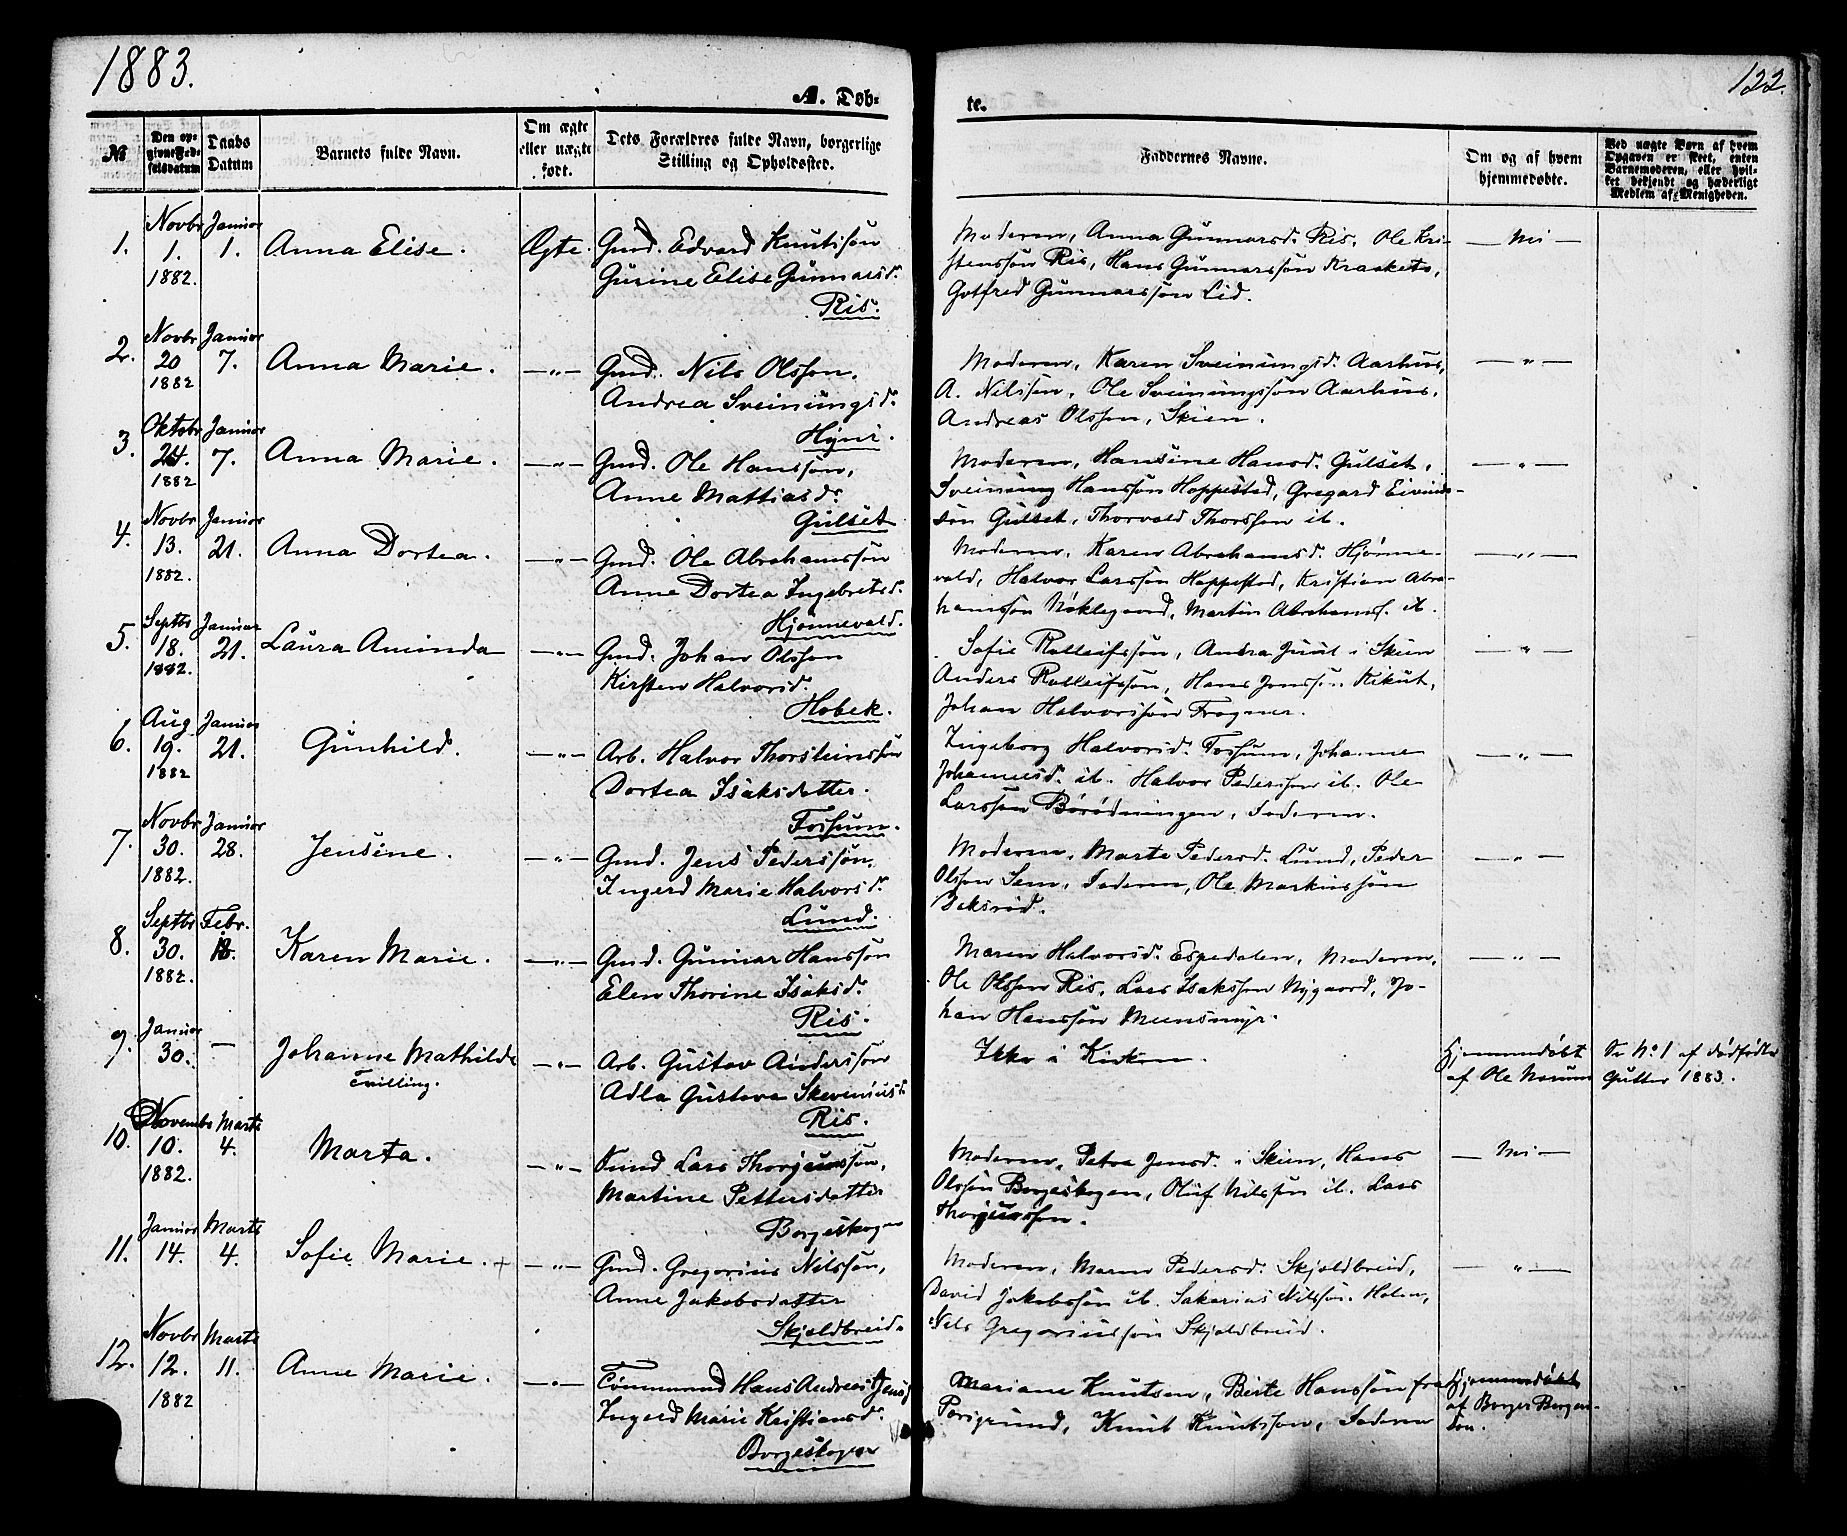 1883.
122.
A. Døb-
te.
№
Den op-
givne Fød-
selsdatum
Daabs
Datum
Barnets fulde Navn.
Om ægte
eller uægte
født.
Dets Forældres fulde Navn, borgerlige
Stilling og Opholdssted.
Faddernes Navne.
Om og af hvem
hjemmedøbte.
Ved uægte Børn af hvem
Opgaven er skeet, enten
Barnemoderen, eller hvil-
ket bekjendt og hæderligt
Medlem af Menigheden.
1.
Novbr
1.
1882.
Januar
1.
Anna Elise.
Ægte.
Gmd. Edvard Knutsøn
Gurine Elise Gunnarsd.
Ris.
Moderen, Anna Gunnarsd. Ris, Ole Kri-
stenssøn Ris, Hans Gunnarssøn Kraaketo,
Gotfred Gunnarssøn Lid.
— Nei —
2.
Novbr
20
1882
Januar
7.
Anna Marie.
— „ —
Gmd. Nils Olsson.
Andrea Sveinungsd.
Hyni.
Moderen, Karen Sveinungsd. Aarhus,
A. Nilssen, Ole Sveinungssøn Aarhus,
Andreas Olssen, Skien.
— „ —
3.
Oktobr
24.
1882
Januar
7.
Anna Marie.
— „ —
Gmd. Ole Hanssøn,
Anne Mattiasd.
Gulset
Moderen, Hansine Hansd. Gulset,
Sveinung Hanssøn Hoppestad, Gregard Eivinds-
søn Gulset, Thorvald Thorssen ib.
— „ —
4.
Novbr
13.
1882.
Januar
21.
Anna Dortea.
— „ —
Gmd. Ole Abrahamssøn
Anne Dortea Ingebretsd.
Hjønnevald.
Moderen, Karen Abrahamsd. Hjønne-
vald, Halvor Larssøn Hoppestad, Kristian Abra-
hamssøn Nøklegaard, Martin Abrahams. ib.
— „ —
5.
Septbr
18.
1882.
Januar
21.
Laura Aminda
— „ —
Gmd. Johan Olsson
Kirsten Halvorsd.
Hobek.
Sofie Rolleifssøn, Andrea Juul i Skien
Anders Rolleifssøn, Hans Jonssøn Kikut,
Johan Halvorssøn Frogner.
— „ —
6.
Aug
19.
1882
Januar
21.
Gunhild.
— „ —
Arb. Halvor Thorsteinssøn
Dortea Isaksdatter.
Fossum.
Ingeborg Halvorsd. Fossum, Johanne
Johannesd. ib. Halvor Pederssen ib. Ole
Larssøn Børødningen, Faderen.
— „ —
7.
Novbr
30.
1882.
Januar
28.
Jensine.
— „ —
Gmd. Jens Pederssøn.
Ingerd Marie Halvorsd.
Lund.
Moderen, Marte Pedersd. Lund, Peder
Olsson Sem, Faderen, Ole Markussøn
Baksrød.
— „ —
8.
Septbr
30.
1882.
Febr.
18.
Karen Marie.
— „ —
Gmd. Gunnar Hanssøn
Elen Thorine Isaksd.
Ris.
Maren Halvorsd. Espedalen, Moderen,
Ole Olssen Ris, Lars Isakssen Nygaard, Jo-
han Hanssøn Meensmyr.
— „ —
9.
Januar
30.
—
Johanne Mathilde
Tvilling.
— „ —
Arb. Gustav Anderssøn
Adla Gustava Skevenius
Ris.
Ikke i Kirken.
Hjemmedøbt
af Ole Norum
Se No 1 af dødfødte
Gutter 1883.
10.
Novembr
10.
1882.
Marts
4.
Marta.
— „ —
Lars Thorjussøn,
Martine Pettersdatter
Borgeskogen
Moderen, Petra Jensd. i Skien, Hans
Olssøn Borgeskogen, Oluf Nilssøn ib. Lars
Thorjussøn.
— Nei —
11.
Januar
14.
Marts
4.
Sofie Marie.
— „ —
Gmd. Gregorius Nilssøn,
Anne Jakobsdatter
Skjoldbreid.
Moderen, Maren Pedersd. Skjoldbreid,
David Jakobssøn ib. Sakarias Nilssøn Holm,
Nils Gregoriussøn Skjoldbreid.
— „ —
12.
Novbr
12.
1882
Marts
11.
Anne Marie.
— „ —
Tømmermd Hans Andreas Jens
Ingerd Marie Kristiansd.
Borgeskogen
Mariane Knutsen, Birte Hanssøn fra
Porsgrund, Knut Knutssøn, Faderen
Hjemmedøbt
af Borger Borger-
søn.